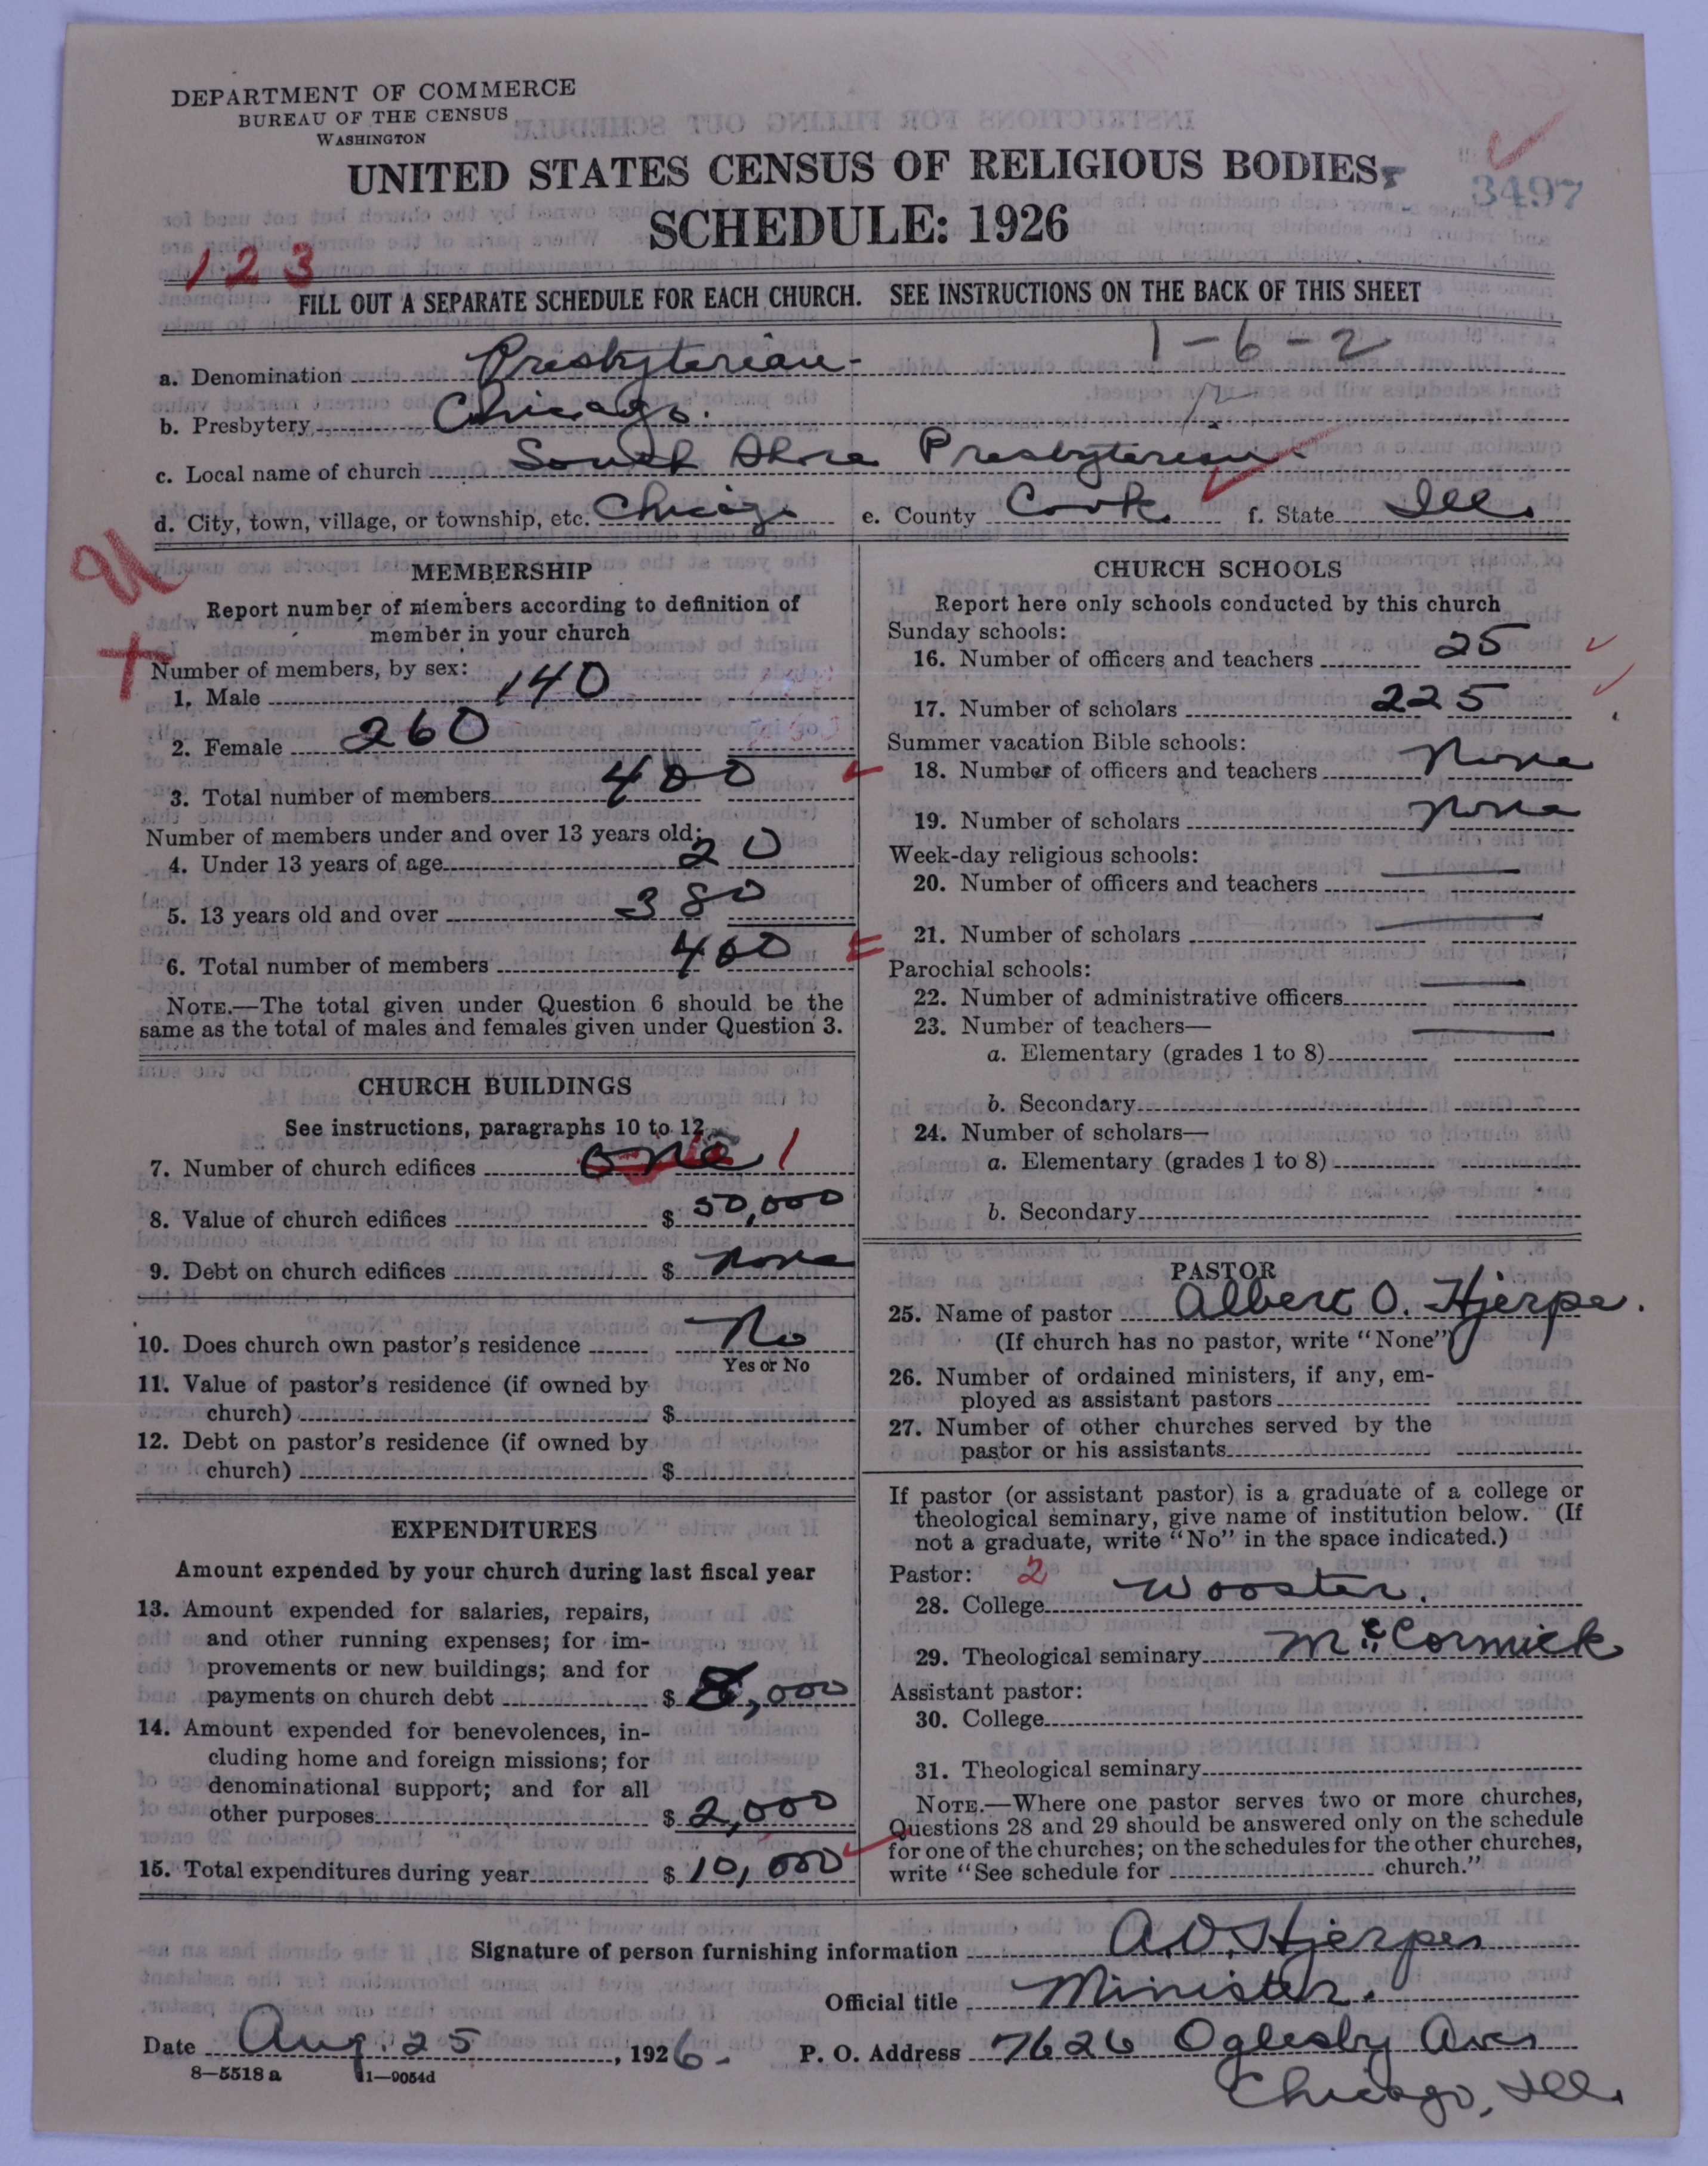 DEPARTMENT OF COMMERCE
BUREAU OF THE CENSUS
WASHINGTON
UNITED STATES CENSUS OF RELIGIOUS BODIES,
3497
SCHEDULE: 1926
123
FILL OUT A SEPARATE SCHEDULE FOR EACH CHURCH. SEE INSTRUCTIONS ON THE BACK OF THIS SHEET
1-6-2
a. Denomination Presbyterian
b. Presbytery Chicago.
c. Local name of church South Shore Presbyterian
d. City, town, village, or township, etc. Chicago e. County Cook f. State Ill.
MEMBERSHIP
Report number of members according to definition of
member in your church
Number of members, by sex:
1. Male 140
2. Female 260
3. Total number of members 400
Number of members under and over 13 years old:
4. Under 13 years of age 20
5. 13 years old and over 380
6. Total number of members 400
NOTE.—The total given under Question 6 should be the
same as the total of males and females given under Question 3.
CHURCH BUILDINGS
See instructions, paragraphs 10 to 12
7. Number of church edifices one 1
8. Value of church edifices $ 50,000
9. Debt on church edifices $ none
10. Does church own pastor's residence No
Yes or No
11. Value of pastor's residence (if owned by
church) $
12. Debt on pastor's residence (if owned by
church) $
EXPENDITURES
Amount expended by your church during last fiscal year
13. Amount expended for salaries, repairs,
and other running expenses; for im-
provements or new buildings; and for
payments on church debt $ 8,000
14. Amount expended for benevolences, in-
cluding home and foreign missions; for
denominational support; and for all
other purposes $ 2,000
15. Total expenditures during year $ 10,000
CHURCH SCHOOLS
Report here only schools conducted by this church
Sunday schools:
16. Number of officers and teachers 25
17. Number of scholars 225
Summer vacation Bible schools:
18. Number of officers and teachers None
19. Number of scholars none
Week-day religious schools:
20. Number of officers and teachers
21. Number of scholars
Parochial schools:
22. Number of administrative officers
23. Number of teachers—
a. Elementary (grades 1 to 8)
b. Secondary
24. Number of scholars—
a. Elementary (grades 1 to 8)
b. Secondary
PASTOR
25. Name of pastor Albert O. Hjerpe.
(If church has no pastor, write "None")
26. Number of ordained ministers, if any, em-
ployed as assistant pastors
27. Number of other churches served by the
pastor or his assistants
If pastor (or assistant pastor) is a graduate of a college or
theological seminary, give name of institution below. (If
not a graduate, write "No" in the space indicated.)
Pastor: 2
28. College Wooster.
29. Theological seminary McCormick
Assistant pastor:
30. College
31. Theological seminary
NOTE.—Where one pastor serves two or more churches,
Questions 28 and 29 should be answered only on the schedule
for one of the churches; on the schedules for the other churches,
write "See schedule for church."
Signature of person furnishing information A.O. Hjerpe
Official title Minister.
Date Aug. 25, 1926. P. O. Address 7626 Oglesby Ave
Chicago, Ill.
8—5518 a 11—9054d